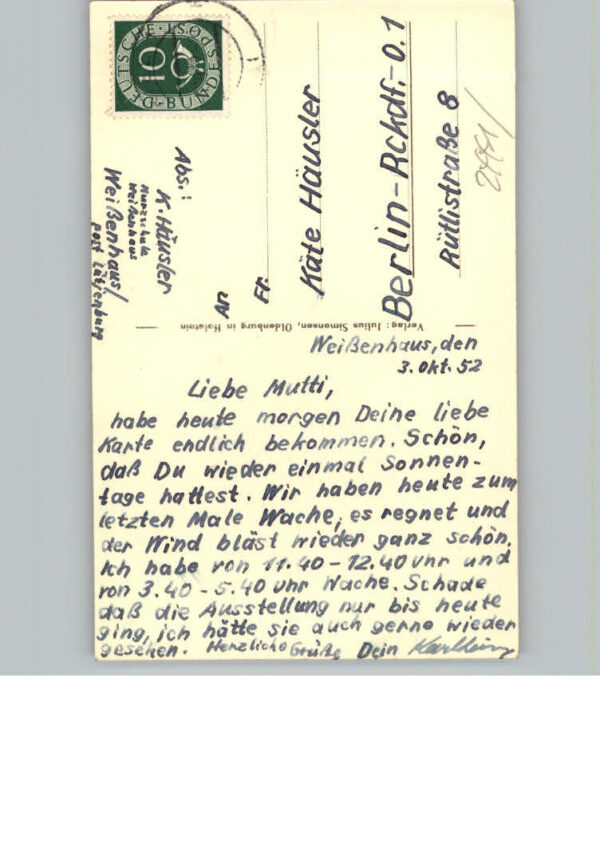 DEUTSCHE BUNDESPOST
10
Abs.:
K. Häusler
Weißenhaus
Weißenhaus/
Post Lütjenburg
An
Fr.
Käte Häusler
Berlin-Rckdf.-O.1
Rütlistraße 8
Verlag: Julius Simonsen, Oldenburg in Holstein
Weißenhaus, den
3. Okt. 52
Liebe Mutti,
habe heute morgen Deine liebe
Karte endlich bekommen. Schön,
daß Du wieder einmal Sonnen-
tage hattest. Wir haben heute zum
letzten Male Wache, es regnet und
der Wind bläst wieder ganz schön.
Ich habe von 11.40 - 12.40 Uhr und
von 3.40 - 5.40 Uhr Wache. Schade
daß die Ausstellung nur bis heute
ging, ich hätte sie auch gerne wieder
gesehen. Herzliche Grüße Dein Karlheinz